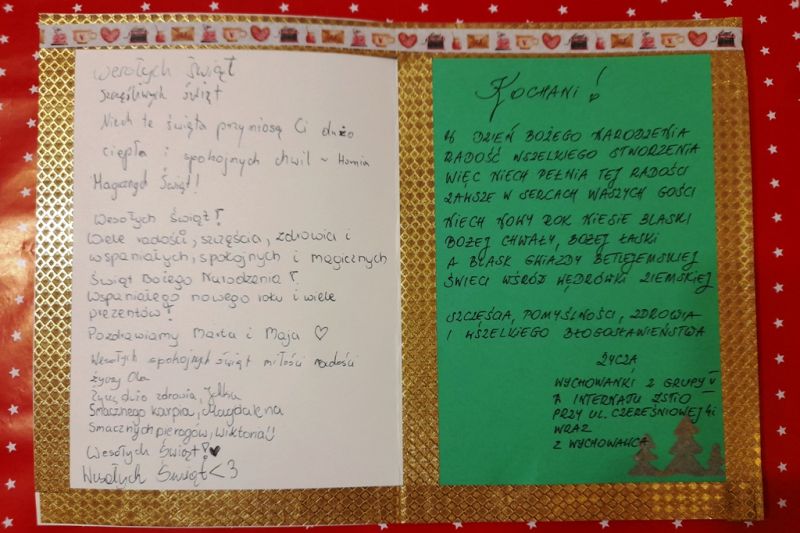 Wesołych Świąt
Szczęśliwych Świąt
Niech te święta przyniosą Ci dużo
ciepła i spokojnych chwil ~ Hania
Magicznych Świąt!
Wesołych Świąt!
Wiele radości, szczęścia, zdrowia i
wspaniałych, spokojnych i magicznych
Świąt Bożego Narodzenia!
Wspaniałego nowego roku i wiele
prezentów!
Pozdrawiamy Marta i Maja ♡
Wesołych spokojnych świąt miłości radości
życzy Ola
Życzę dużo zdrowia, Julka
Smacznego karpia, Magdalena
Smacznych pierogów, Wiktoria!!
Wesołych Świąt! ♥
Wesołych Świąt <3
KOCHANI!
W DZIEŃ BOŻEGO NARODZENIA
RADOŚĆ WSZELKIEGO STWORZENIA
WIĘC NIECH PEŁNIA TEJ RADOŚCI
ZAWSZE W SERCACH WASZYCH GOŚCI
NIECH NOWY ROK NIESIE BLASKI
BOŻEJ CHWAŁY, BOŻEJ ŁASKI
A BLASK GWIAZDY BETLEJEMSKIEJ
ŚWIECI WŚRÓD WĘDRÓWKI ZIEMSKIEJ
SZCZĘŚCIA, POMYŚLNOŚCI, ZDROWIA
I WSZELKIEGO BŁOGOSŁAWIEŃSTWA
ŻYCZĄ
WYCHOWANKI Z GRUPY V
W INTERNATU ZSTIO
PRZY UL. CZEREŚNIOWEJ
WRAZ
Z WYCHOWAWCĄ